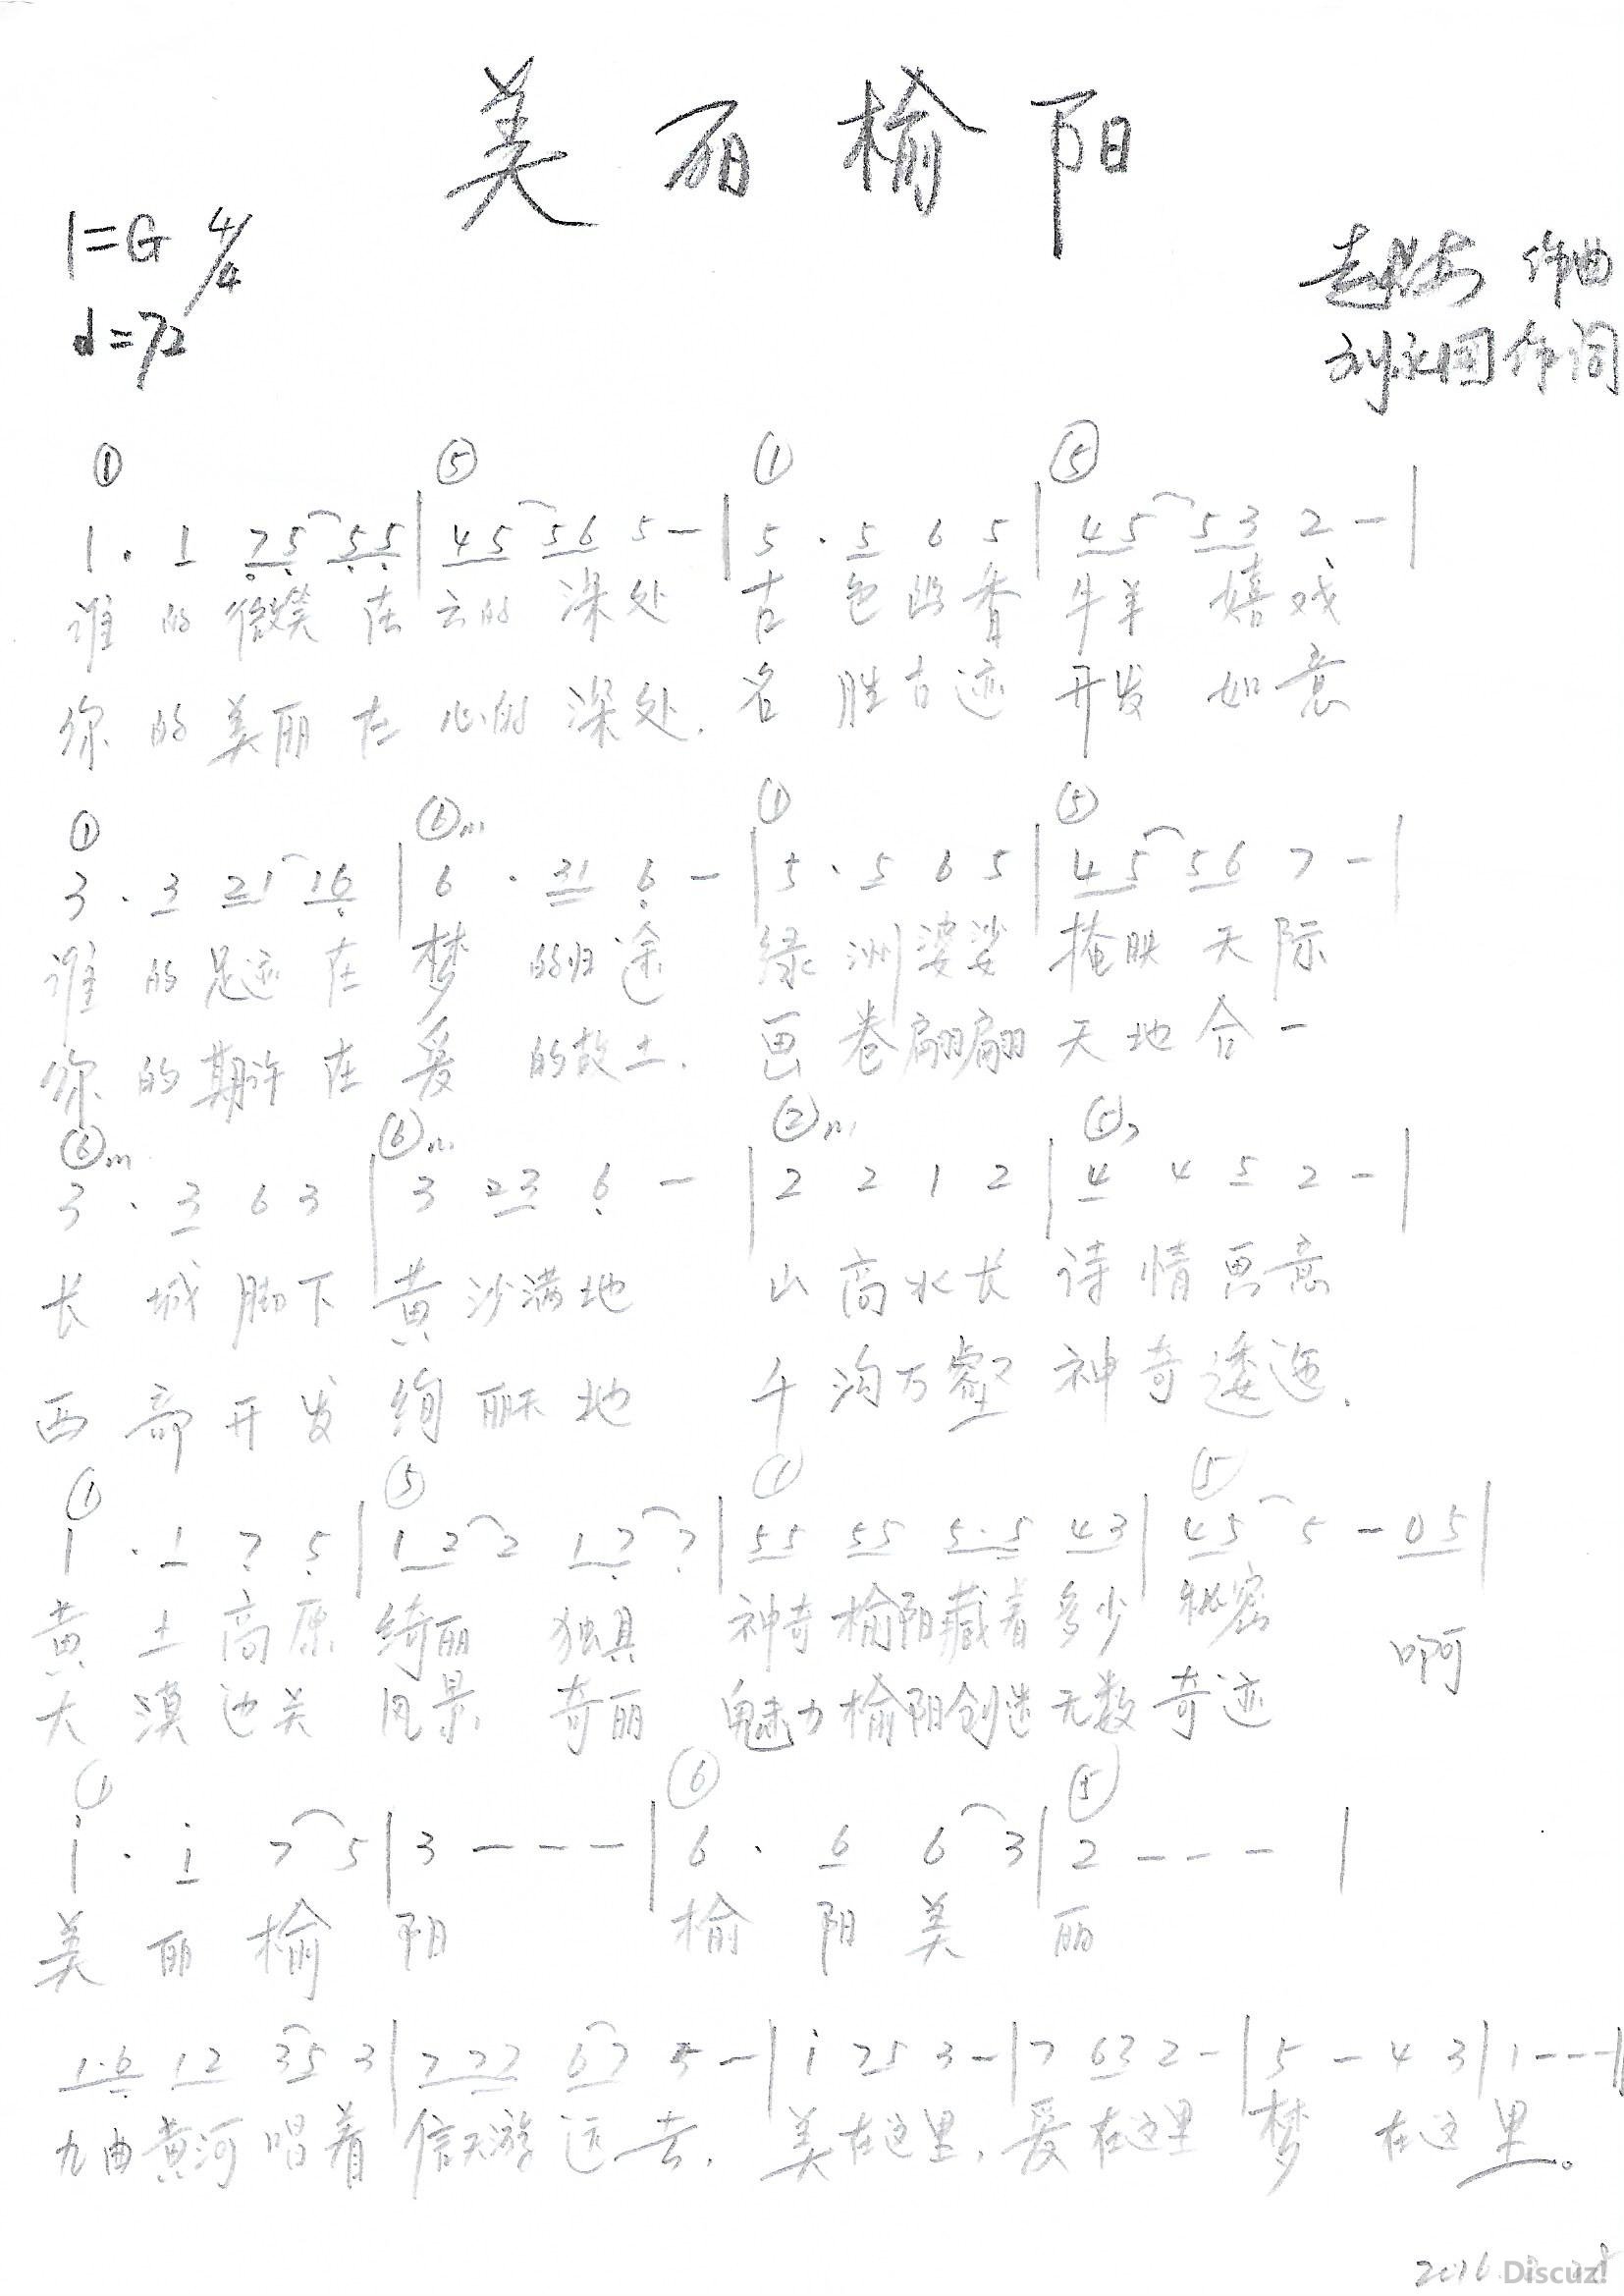 美丽榆阳
1=G 4/4
作曲
♩=72
刘永国作词
① ⑤ ① ⑤
1 · 1 7 5 5 5 | 4 5 5 6 5 - | 5 · 5 6 5 | 4 5 5 3 2 - |
谁的微笑在云的深处 古色幽香牛羊嬉戏
你的美丽在心的深处. 名胜古迹开发如意
① ⑥m ① ⑤
3 · 3 2 1 1 6 | 6 · 3 1 6 - | 5 · 5 6 5 | 4 5 5 6 7 - |
谁的足迹在梦的归途 绿洲婆娑掩映天际
你的期许在爱的故土. 画卷翩翩天地合一
⑥m ⑥m ②m ⑤7
3 · 3 6 3 | 3 2 3 6 - | 2 2 1 2 | 4 4 5 2 - |
长城脚下黄沙满地 山高水长诗情画意
西部开发绚丽天地 千沟万壑神奇逶迤.
① ⑤ ① ⑤
1 · 1 7 5 | 1 2 2 1 7 7 | 5 5 5 5 5 · 5 4 3 | 4 5 5 - 0 5 |
黄土高原绮丽独具 神奇榆阳藏着多少秘密 啊
大漠边关风景奇丽 魅力榆阳创造无数奇迹
① ⑥ ⑤
i · i 7 5 | 3 - - - | 6 · 6 6 3 | 2 - - - |
美丽榆阳 榆阳美丽
1 · 6 1 2 3 5 3 | 7 7 7 6 7 5 - | i 7 5 3 - | 7 6 3 2 - | 5 - 4 3 | 1 - - - |
九曲黄河唱着信天游远去. 美在这里, 爱在这里 梦在这里。
2016
Discuz!